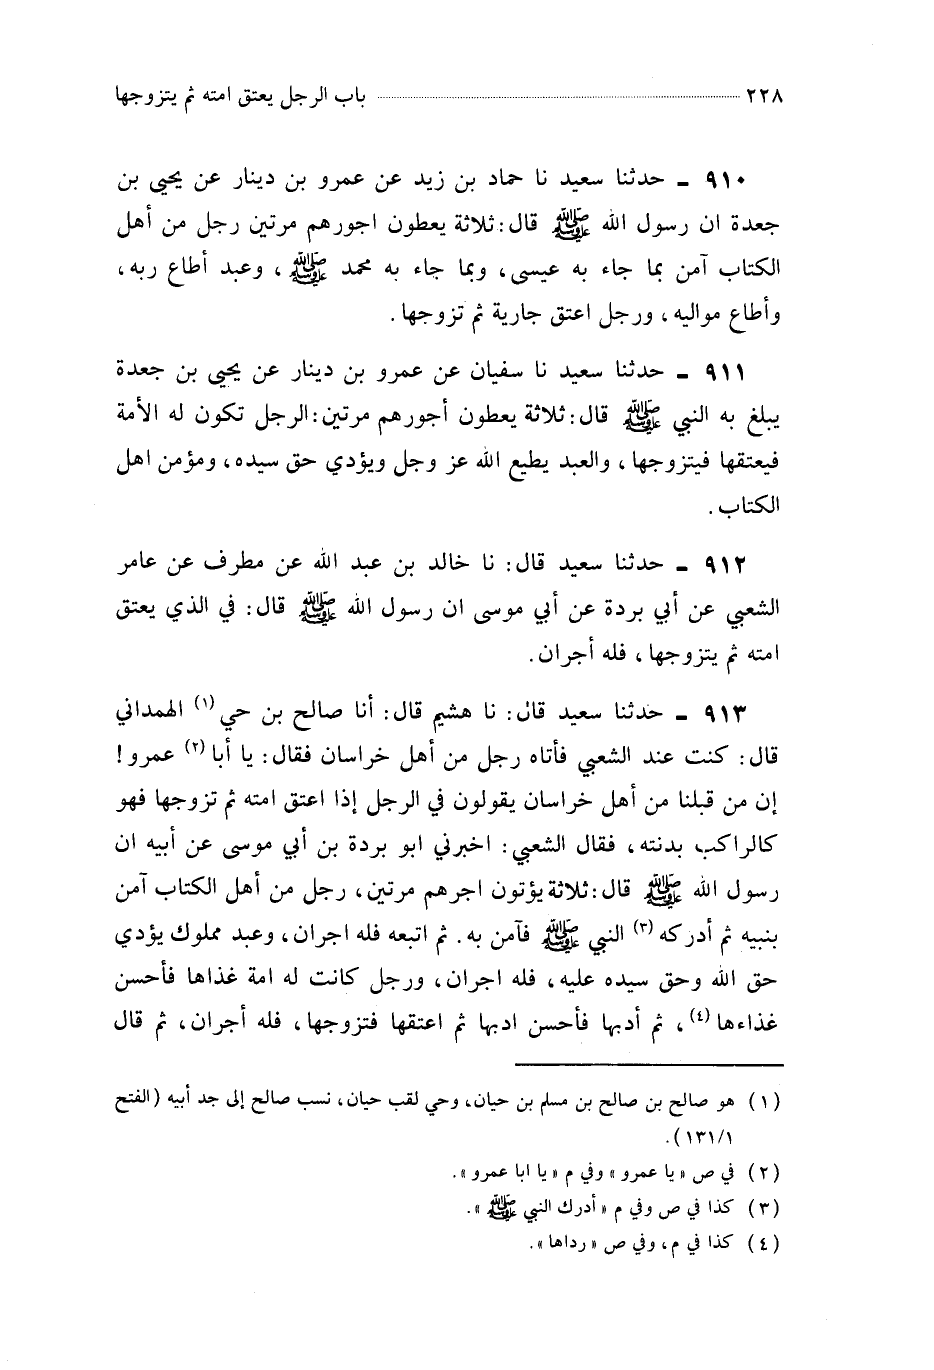 ٢٢٨ باب الرجل يعتق امته ثم يتزوجها
٩١٠ ـ حدثنا سعيد نا حماد بن زيد عن عمرو بن دينار عن يحيى بن
جعدة ان رسول الله ﷺ قال: ثلاثة يعطون اجورهم مرتين رجل من أهل
الكتاب آمن بما جاء به عيسى، وبما جاء به محمد ﷺ، وعبد أطاع ربه،
وأطاع مواليه، ورجل اعتق جارية ثم تزوجها.
٩١١ ـ حدثنا سعيد نا سفيان عن عمرو بن دينار عن يحيى بن جعدة
يبلغ به النبي ﷺ قال: ثلاثة يعطون أجورهم مرتين: الرجل تكون له الأمة
فيعتقها فيتزوجها، والعبد يطيع الله عز وجل ويؤدي حق سيده، ومؤمن اهل
الكتاب.
٩١٢ ـ حدثنا سعيد قال: نا خالد بن عبد الله عن مطرف عن عامر
الشعبي عن أبي بردة عن أبي موسى ان رسول الله ﷺ قال: في الذي يعتق
امته ثم يتزوجها، فله أجران.
٩١٣ ـ حدثنا سعيد قال: نا هشيم قال: أنا صالح بن حي (١) الهمداني
قال: كنت عند الشعبي فأتاه رجل من أهل خراسان فقال: يا أبا (٢) عمرو!
إن من قبلنا من أهل خراسان يقولون في الرجل إذا اعتق امته ثم تزوجها فهو
كالراكب بدنته، فقال الشعبي: اخبرني ابو بردة بن أبي موسى عن أبيه ان
رسول الله ﷺ قال: ثلاثة يؤتون اجرهم مرتين، رجل من أهل الكتاب آمن
بنبيه ثم أدركه (٣) النبي ﷺ فآمن به. ثم اتبعه فله اجران، وعبد مملوك يؤدي
حق الله وحق سيده عليه، فله اجران، ورجل كانت له امة غذاها فأحسن
غذاءها (٤)، ثم أدبها فأحسن ادبها ثم اعتقها فتزوجها، فله أجران، ثم قال
(١) هو صالح بن صالح بن مسلم بن حيان، وحي لقب حيان، نسب صالح إلى جد أبيه (الفتح
١/١٣١).
(٢) في ص «يا عمرو» وفي م «يا ابا عمرو».
(٣) كذا في ص وفي م «أدرك النبي ﷺ».
(٤) كذا في م، وفي ص «رداها».